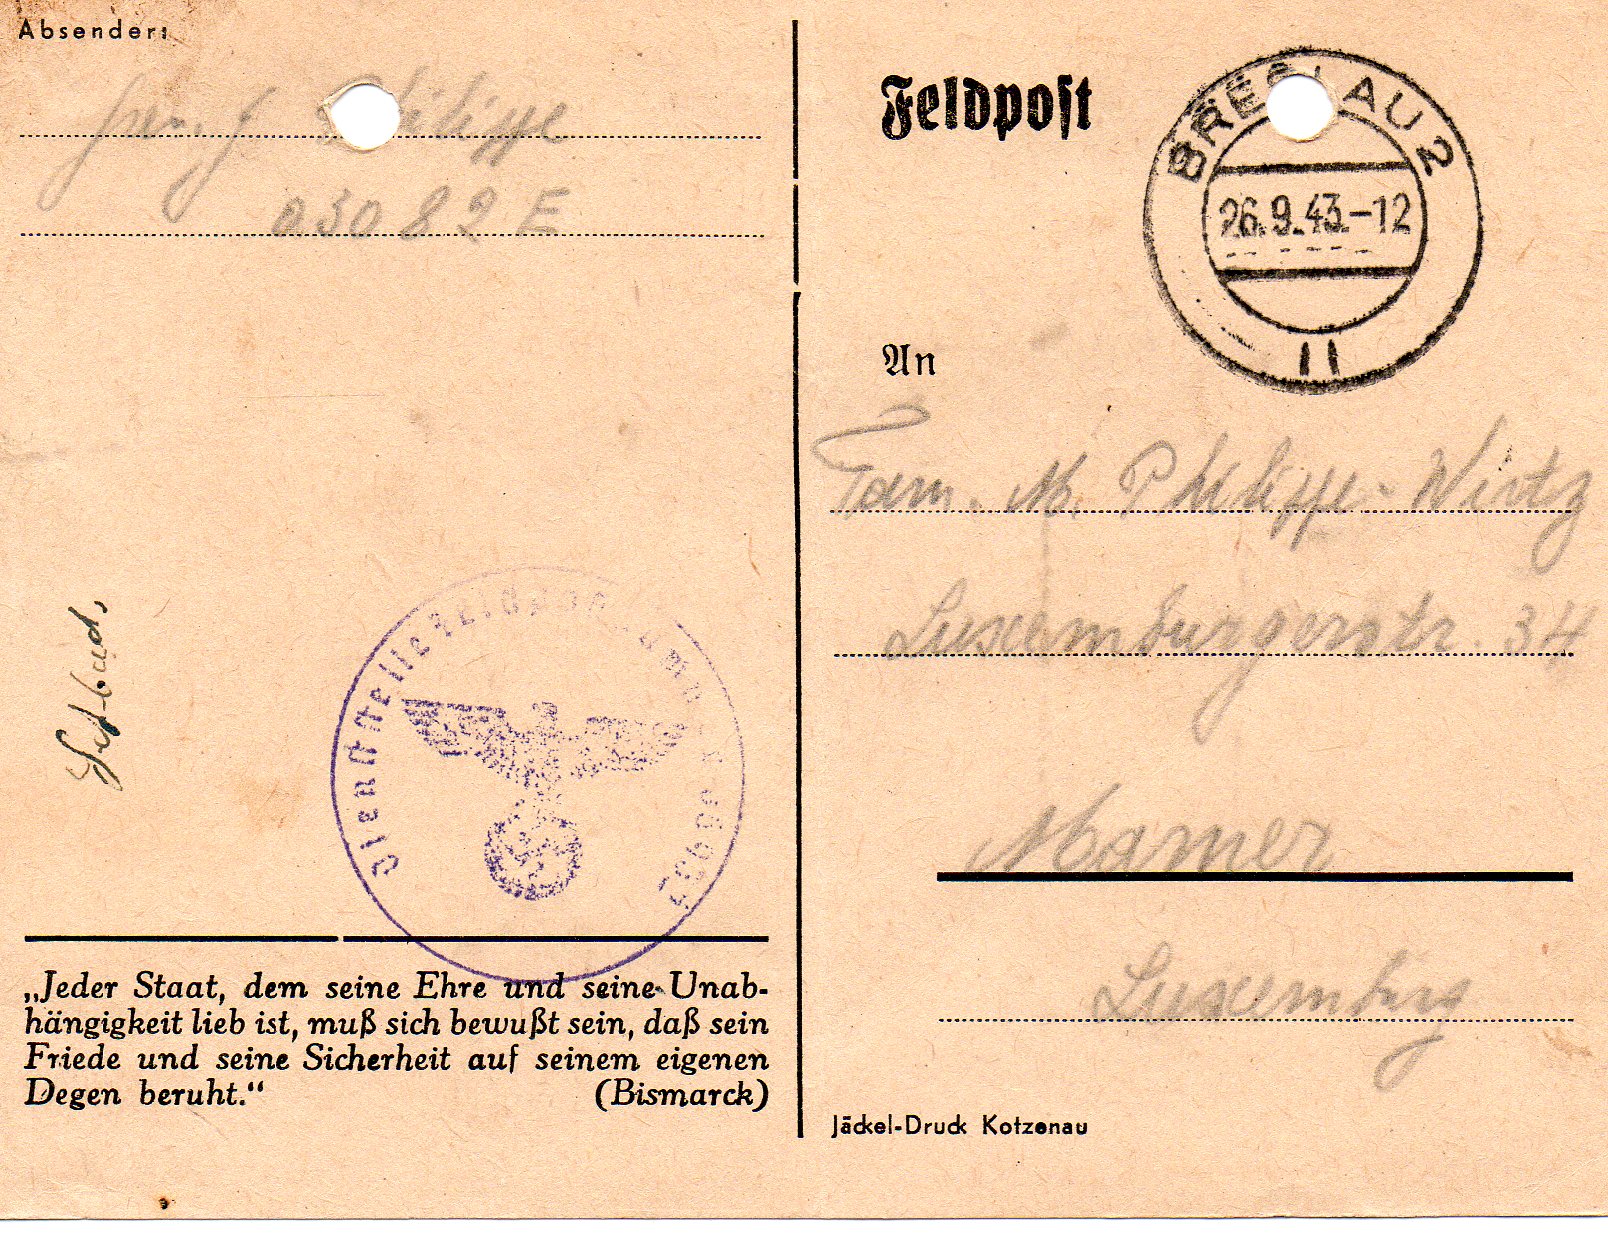 Absender:
Gren. J. Philippe
03082 E
Feldpost
BRESLAU 2
26.9.43.-12
II
An
Fam. M. Philippe-Wirtz
Luxemburgerstr. 34
Mamer
Luxemburg
Dienststelle Feldpostnummer
„Jeder Staat, dem seine Ehre und seine Unab-
hängigkeit lieb ist, muß sich bewußt sein, daß sein
Friede und seine Sicherheit auf seinem eigenen
Degen beruht.“ (Bismarck)
Jäckel-Druck Kotzenau